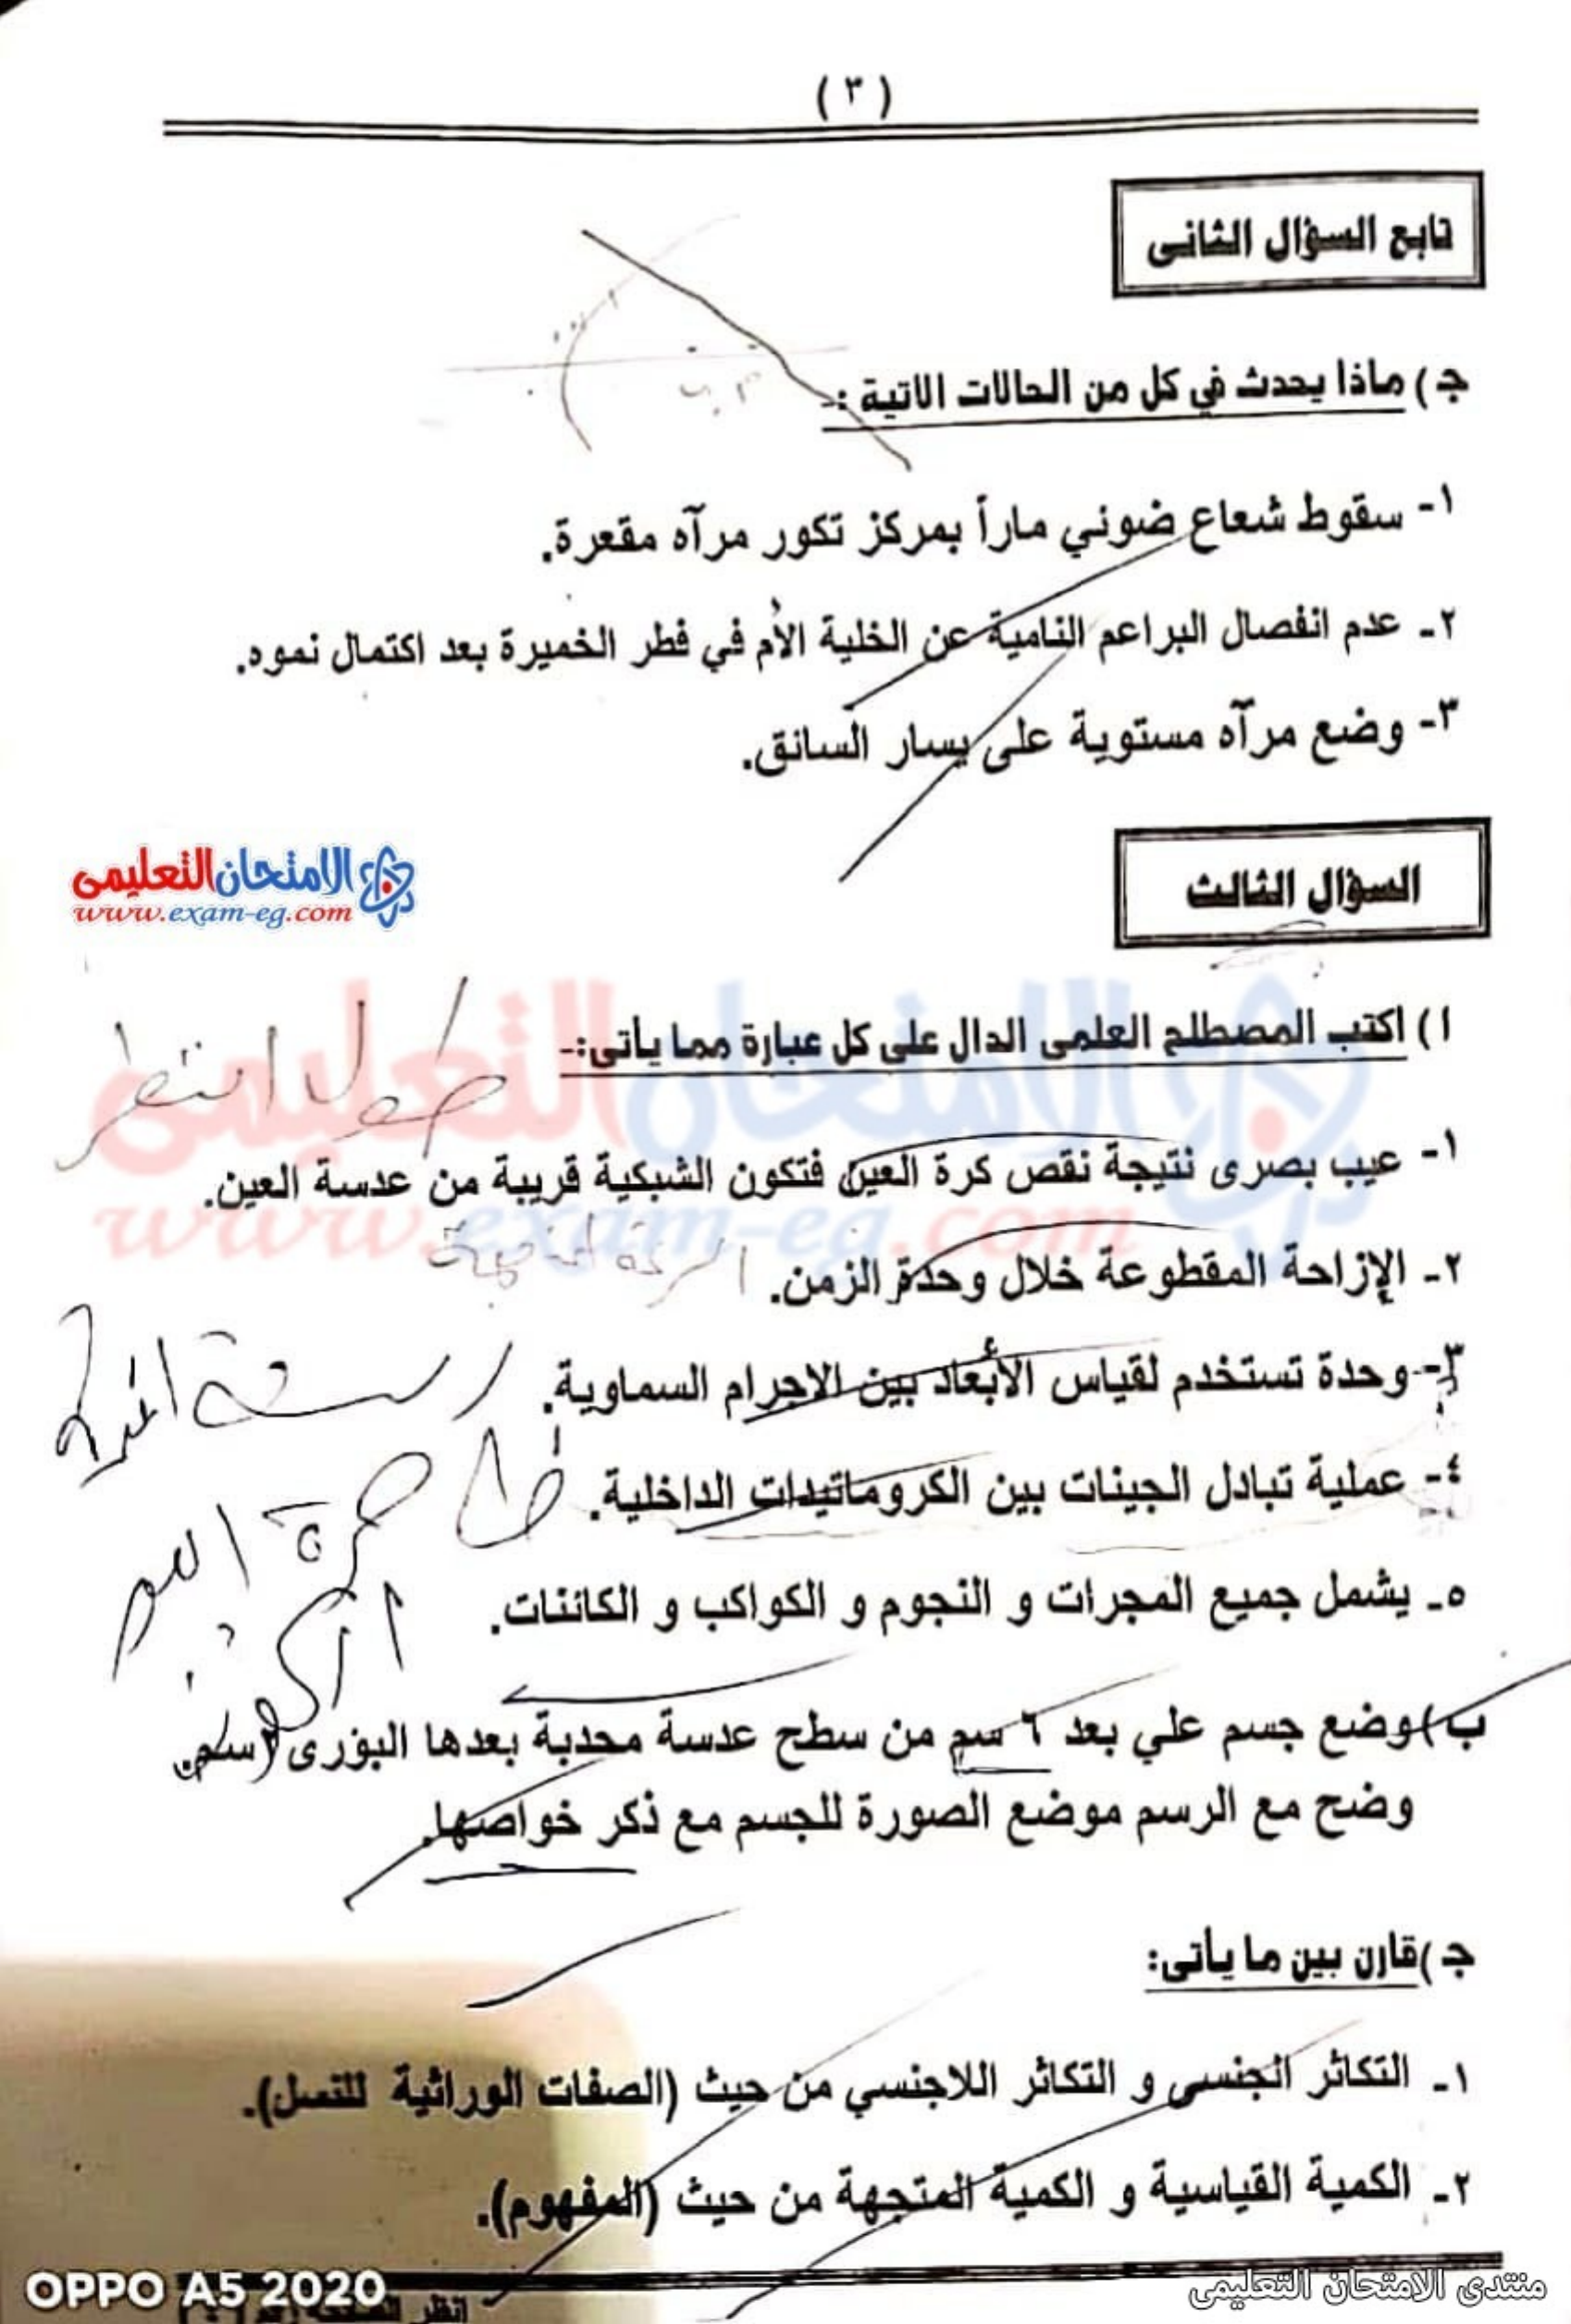 ( ٣ )
تابع السؤال الثانى
جـ ) ماذا يحدث في كل من الحالات الاتية :-
١- سقوط شعاع ضوئي ماراً بمركز تكور مرآه مقعرة.
٢- عدم انفصال البراعم النامية عن الخلية الأم في فطر الخميرة بعد اكتمال نموه.
٣- وضع مرآه مستوية على يسار السائق.
الامتحان التعليمى
www.exam-eg.com
السؤال الثالث
ا ) اكتب المصطلح العلمى الدال على كل عبارة مما يأتى:-
طول النظر
الامتحان التعليمى
١- عيب بصرى نتيجة نقص كرة العين فتكون الشبكية قريبة من عدسة العين.
www.exam-eg.com
٢- الإزاحة المقطوعة خلال وحدة الزمن.
السرعة المتجهة
٣- وحدة تستخدم لقياس الأبعاد بين الاجرام السماوية.
٤- عملية تبادل الجينات بين الكروماتيدات الداخلية.
ظاهرة العبور
٥- يشمل جميع المجرات و النجوم و الكواكب و الكائنات.
الكون
ب) وضع جسم علي بعد ٦ سم من سطح عدسة محدبة بعدها البؤرى سم.
وضح مع الرسم موضع الصورة للجسم مع ذكر خواصها.
جـ ) قارن بين ما يأتى:
١- التكاثر الجنسى و التكاثر اللاجنسي من حيث (الصفات الوراثية للنسل).
٢- الكمية القياسية و الكمية المتجهة من حيث (المفهوم).
OPPO A5 2020
انظر الصفحة رقم
منتدى الامتحان التعليمى